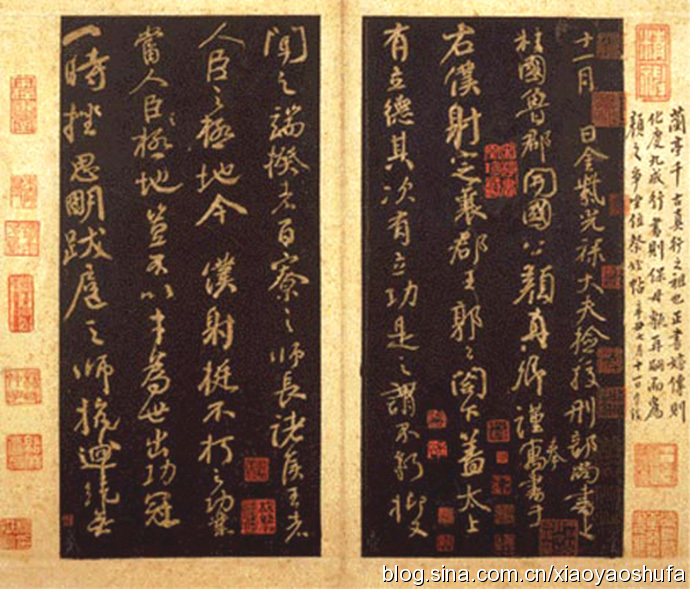 蘭亭千古真行之祖也正書 傳則
化度九成行書則保母 再嗣而為
顏之爭坐位祭姪帖 辛丑七月十一日
十一月 日金紫光祿大夫檢校刑部尚書上
柱國魯郡開國公顏真卿謹奉寓書于
右僕射定襄郡王郭公閣下蓋太上
有立德其次有立功是之謂不朽抑又
聞之端揆者百寮之師長諸侯王者
人臣之極地今僕射挺不朽之功業
當人臣之極地豈不以才為世出功冠
一時挫思明跋扈之師抗迴紇無
blog.sina.com.cn/xiaoyaoshufa